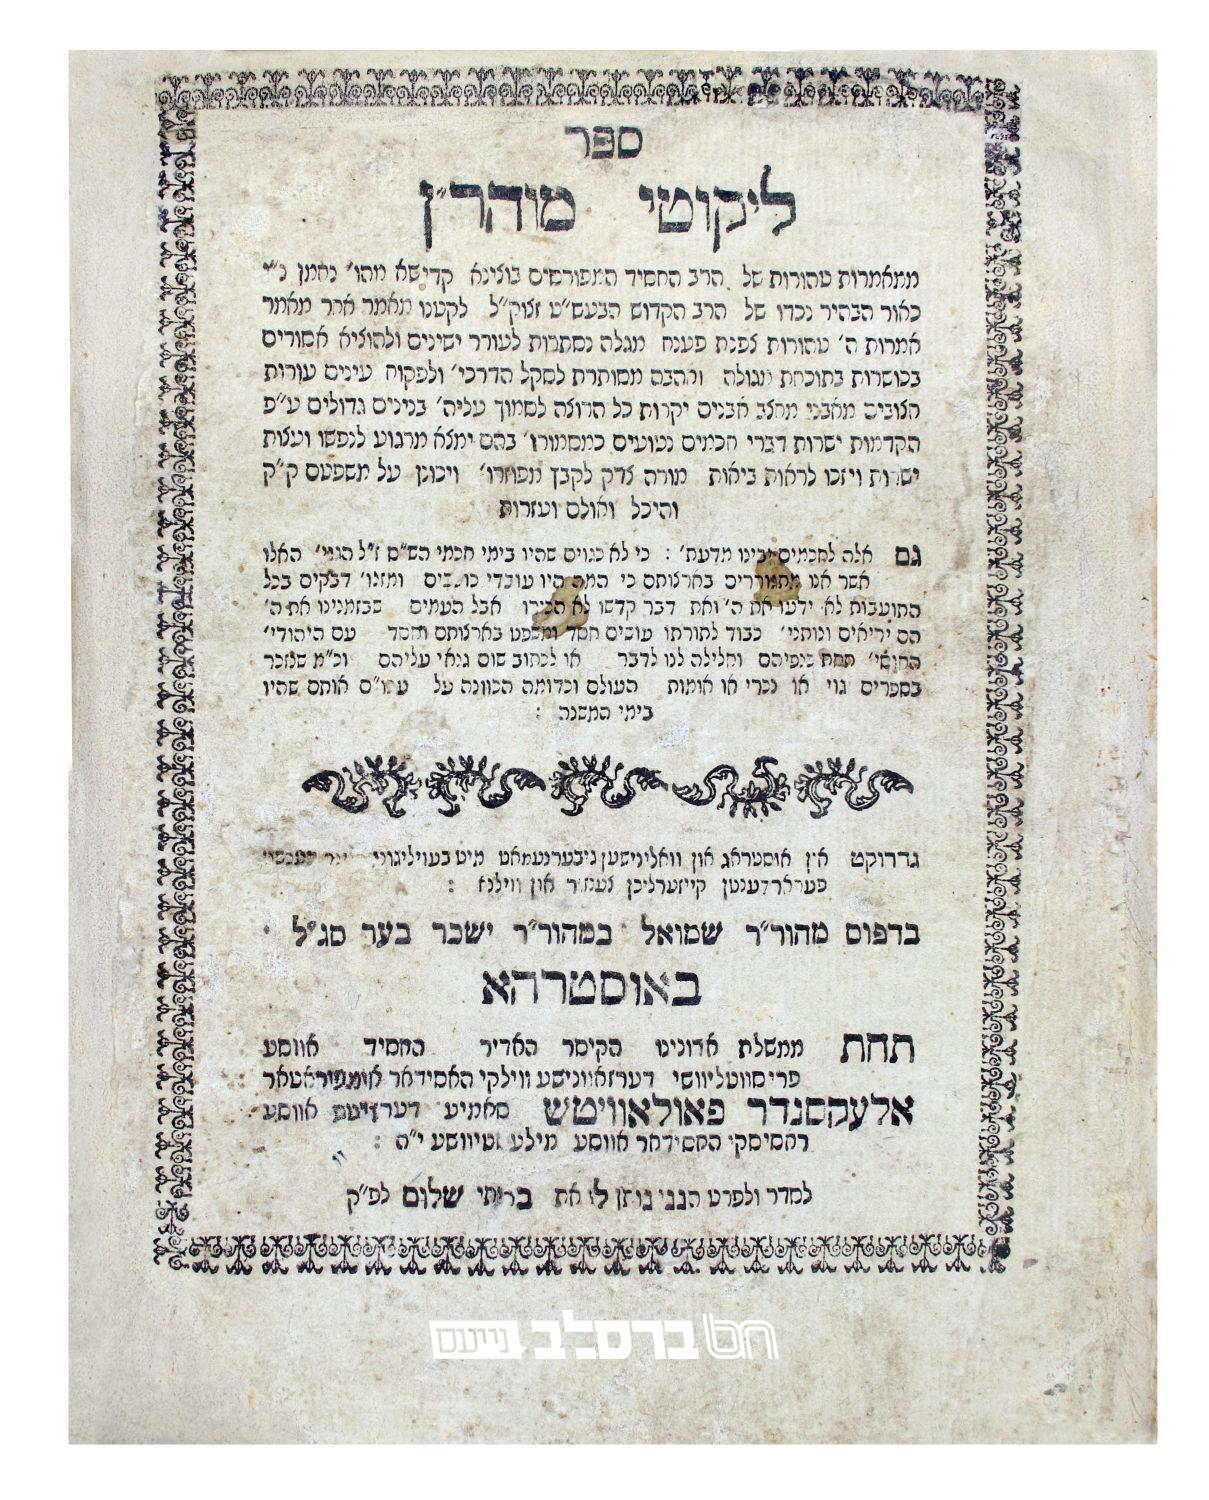 ספר
ליקוטי מוהר״ן
ממאמרות טהורות של הרב החסיד המפורסים בוצינא קדישא מהו׳ נחמן נ״י
כאור הבהיר נכדו של הרב הקדוש הבעש״ט זצוק״ל לקטנו מאמר אחר מאמר
אמרות ה׳ טהורות צפנת פענח מגלה נסתרות לעורר ישינים ולהוציא אסורים
בכושרות בתוכחת מגולה ואהבה מסותרת לסקל הדרכי׳ ולפקוח עינים עורות
החצובים מאבני מחצב אבנים יקרות כל הרוצה לסמוך עליה׳ בנינים גדולים ע״פ
הקדמות ישרות דברי חכמים נטועים כמסמורו׳ בהם ימצא מרגוע לנפשו ועצות
ישרות ויזכו לראות ביאות מורה צדק לקבץ מפוזרו׳ ויכונן על משפטם ק״ק
והיכל ואולם ועזרות
גם אלה לחכמים יבינו מדעת׳ : כי לא כגוים שהיו בימי חכמי הש״ס ז״ל הגוי׳ האלו
אשר אנו מתגוררים בארצותם כי המה היו עובדי כוכבים ומזלו׳ דבקים בכל
התועבות לא ידעו את ה׳ ואת דבר קדשו לא הכירו אבל העמים שבזמנינו את ה׳
הם יריאים ונותני׳ כבוד לתורתו עושים חסד ומשפט בארצותם וחסד עם היהודי׳
החוסי׳ תחת כנפיהם וחלילה לנו לדבר או לכתוב שום גנאי עליהם וכ״מ שנזכר
בספרים גוי או נכרי או אומות העולם וכדומה הכוונה על עכו״ם אותם שהיו
בימי המשנה :
גדרוקט אין אוסטראג און וואלינישען גיבערנעמאט מיט בעוויליגונג
קייזערליכן צענזור און ווילנא :
בדפוס מהור״ר שמואל במהור״ר ישכר בער סג״ל
באוסטרהא
תחת ממשלת אדונינו הקיסר האדיר החסיד אווסע
פריסווטליוושי דערזאוונישע וועליקי האסידאר אימפיראטאר
אלעקסנדר פאולאוויטש סאמיע דערזשעם אווסע
ראסיסקי האסידאר אווסע מילעסטיוושע י״ה :
לסדר ולפרט הנני נותן לו את בריתי שלום לפ״ק
ברסלב נייעס